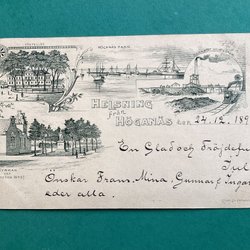 HÖGANÄS HAMN
HELSNING
från
HÖGANÄS den 24.12.189
En Glad och Fröjdefu
Jul
Önskar Frans. Mina Gunnar & Ingar
eder alla.